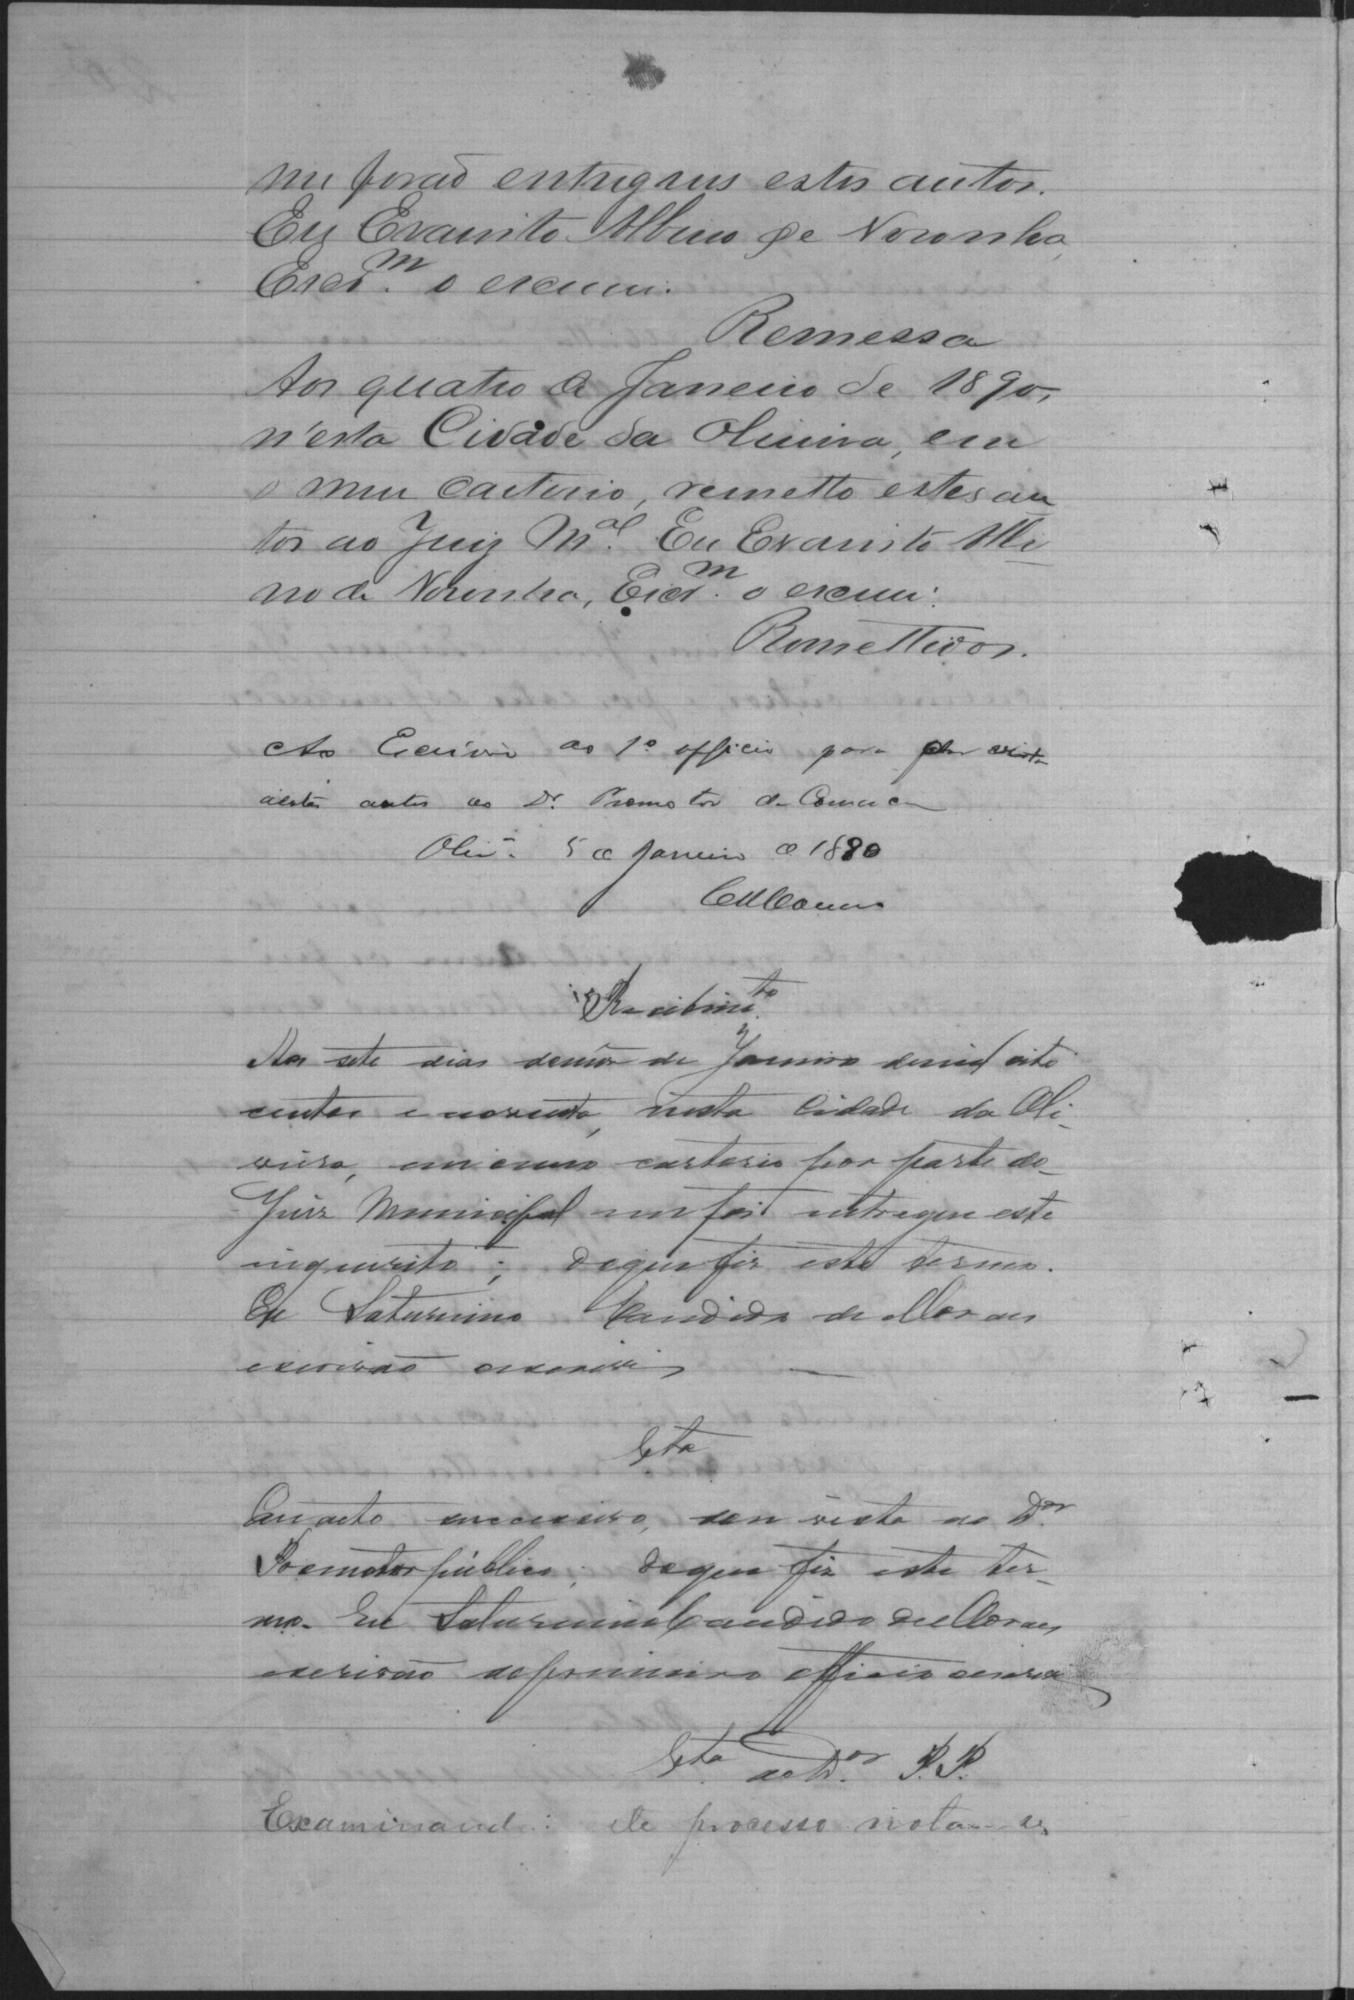 me forão entregues estes autos.
Eu Evaristo Albino de Noronha,
Escr.m o escrevi.
Remessa
Aos quatro de Janeiro de 1890,
n'esta Cidade da Oliveira, em
o meu Cartorio, remetto estes au
tos ao Juiz M.al Eu Evaristo Albi
no de Noronha, Escr.m o escrevi.
Remettidos.
Ao Escrivão do 1º officio para dar vista
destes autos ao Dr. Promotor da Comarca
Olivª. 5 de Janeiro de 1890
Recebimto.
Aos sete dias do mez de Janeiro de mil oito
centos e noventa, nesta Cidade da Oli-
veira, em meu cartorio por parte do
Juiz Municipal me foi entregue este
inquerito; do que fiz este termo.
Eu Saturnino Candido de Moraes
escrivão o escrevi
Vta
Em acto successivo, dou vista ao Dor.
Promotor publico; do que fiz este ter-
mo. Eu Saturnino Candido de Moraes
escrivão do primeiro officio o escrevi
Vta ao Dor. P. P.
Examinando este processo nota-se